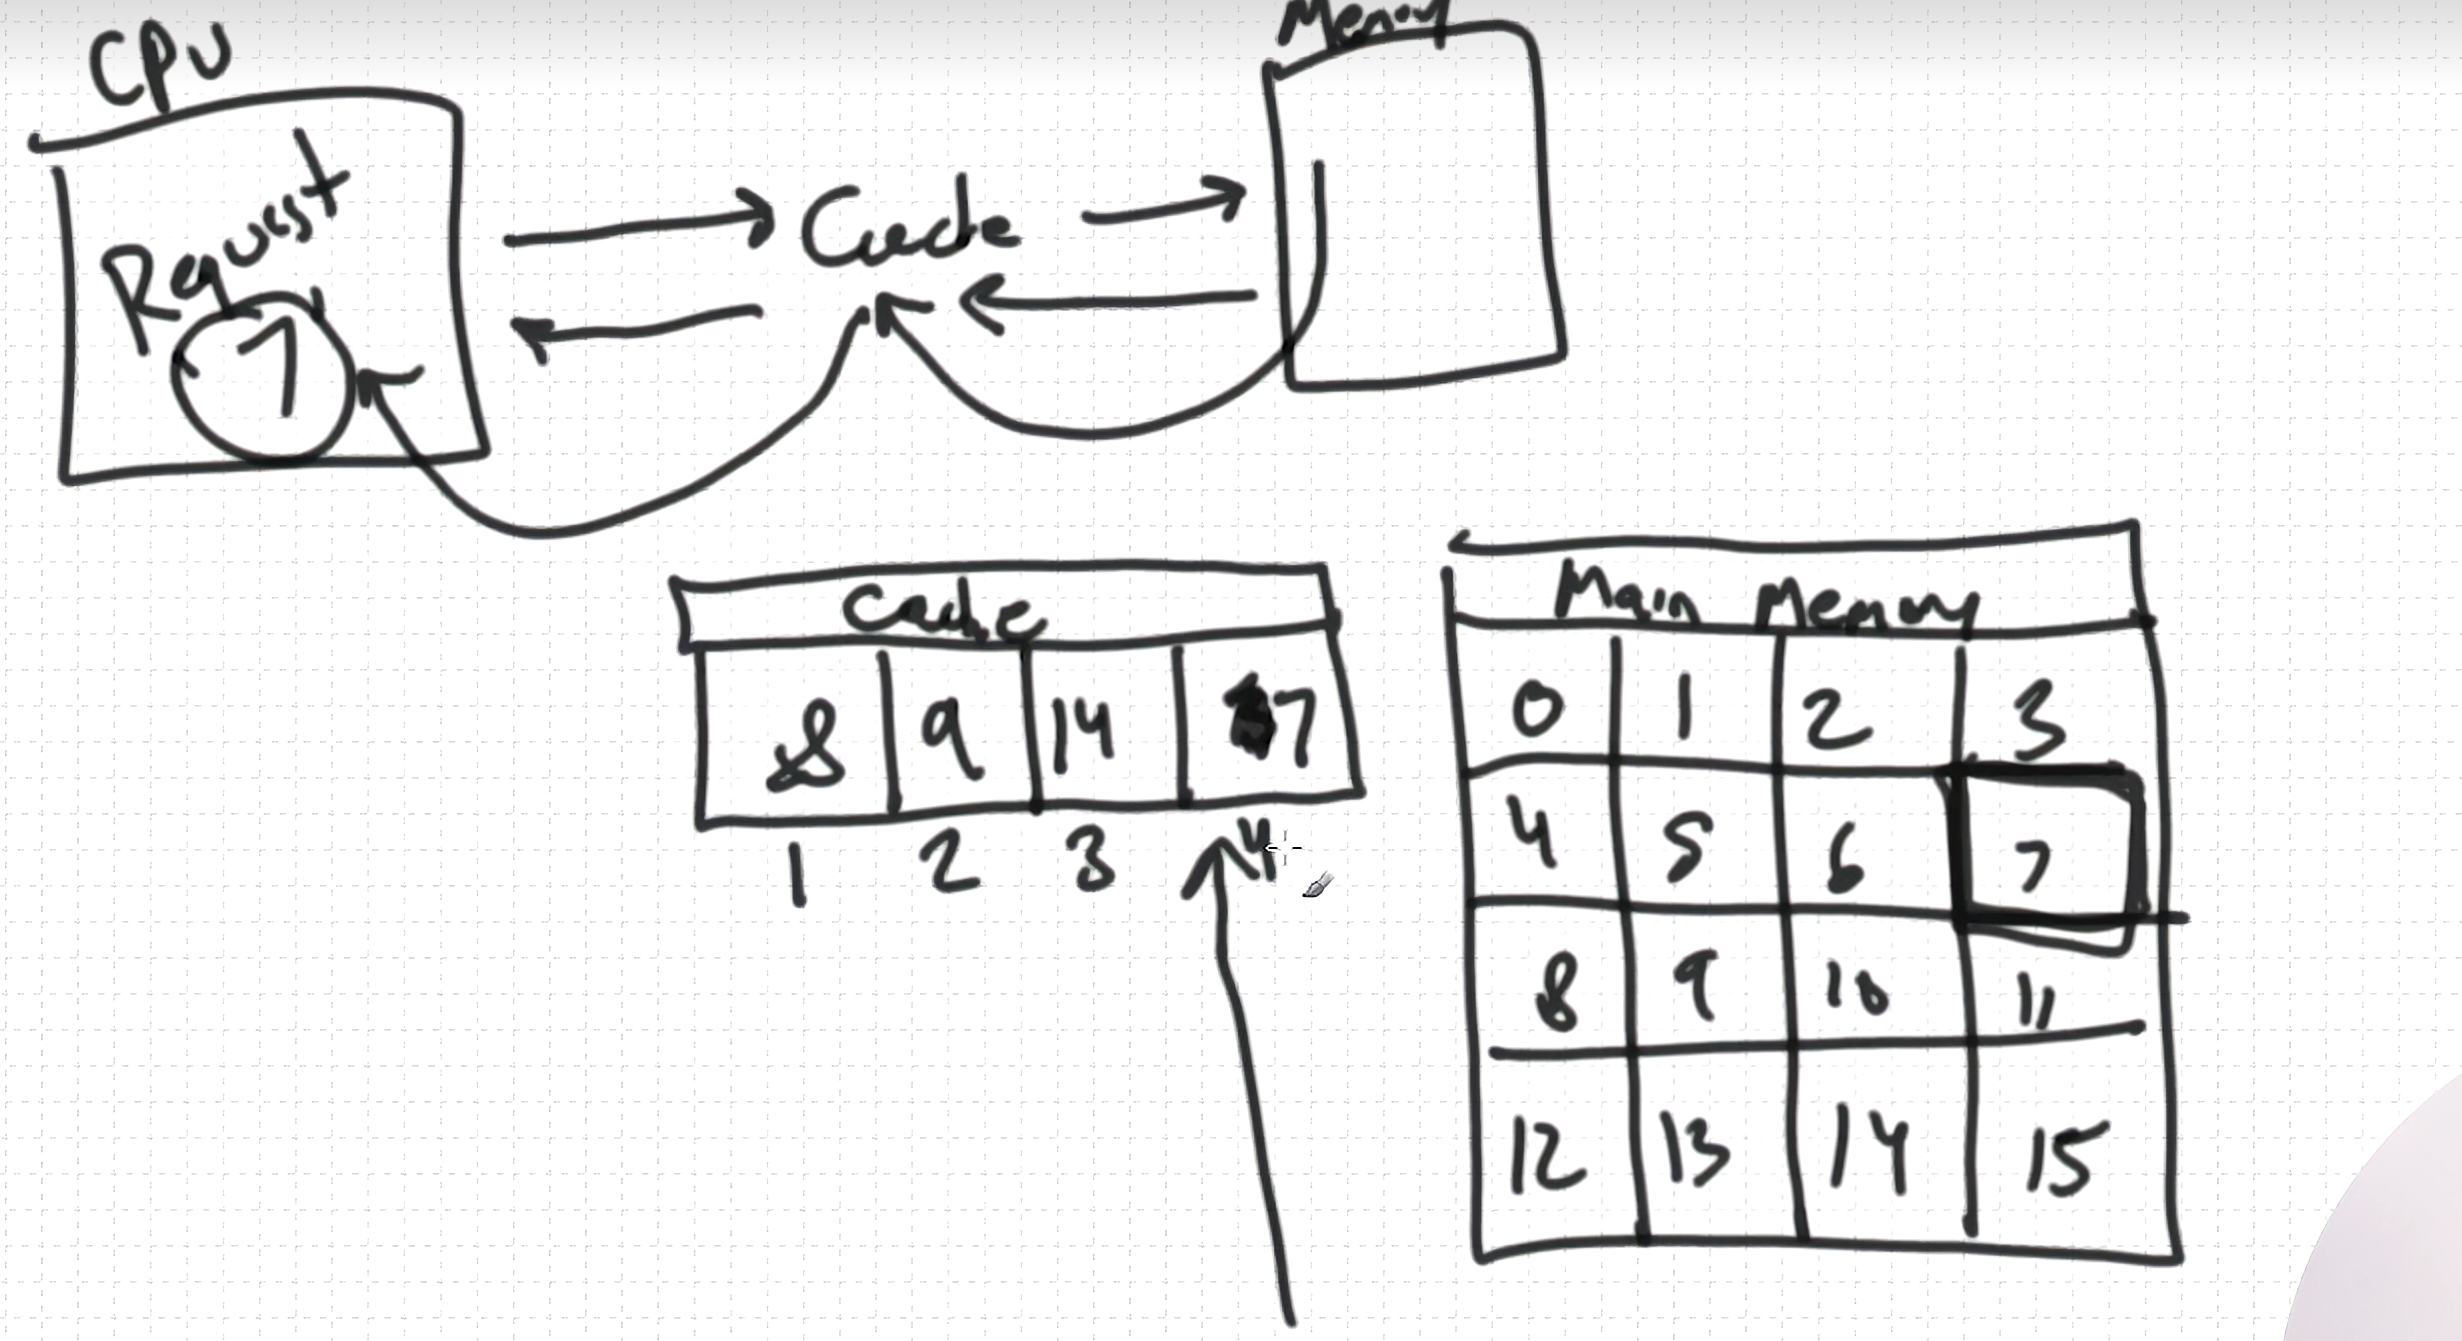 CPU
Memory
Request
7
Cache
Cache
8 9 14 7
1 2 3 4
Main Memory
0 1 2 3
4 5 6 7
8 9 10 11
12 13 14 15